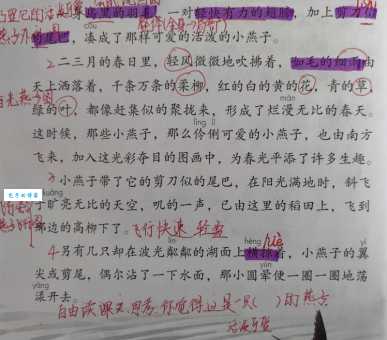 身乌黑的羽毛，一对轻快有力的翅膀，加上剪刀似
的尾巴，凑成了那样可爱的活泼的小燕子。
2二三月的春日里，轻风微微地吹拂着，如毛的细雨由
天上洒落着，千条万条的柔柳，红的白的黄的花，青的草，
绿的叶，都像赶集似的聚拢来，形成了烂漫无比的春天。
这时候，那些小燕子，那么伶俐可爱的小燕子，也由南方
飞来，加入这光彩夺目的图画中，为春光平添了许多生趣。
3小燕子带了它的剪刀似的尾巴，在阳光满地时，斜飞
于旷亮无比的天空，叽的一声，已由这里的稻田上，飞到
那边的高柳下了。飞行快速 轻盈
4另有几只却在波光粼粼的湖面上横掠着，小燕子的翼
尖或剪尾，偶尔沾了一下水面，那小圆晕便一圈一圈地荡
漾开去。
自由读课文，思考，你觉得这是一只( )的燕子
活泼可爱